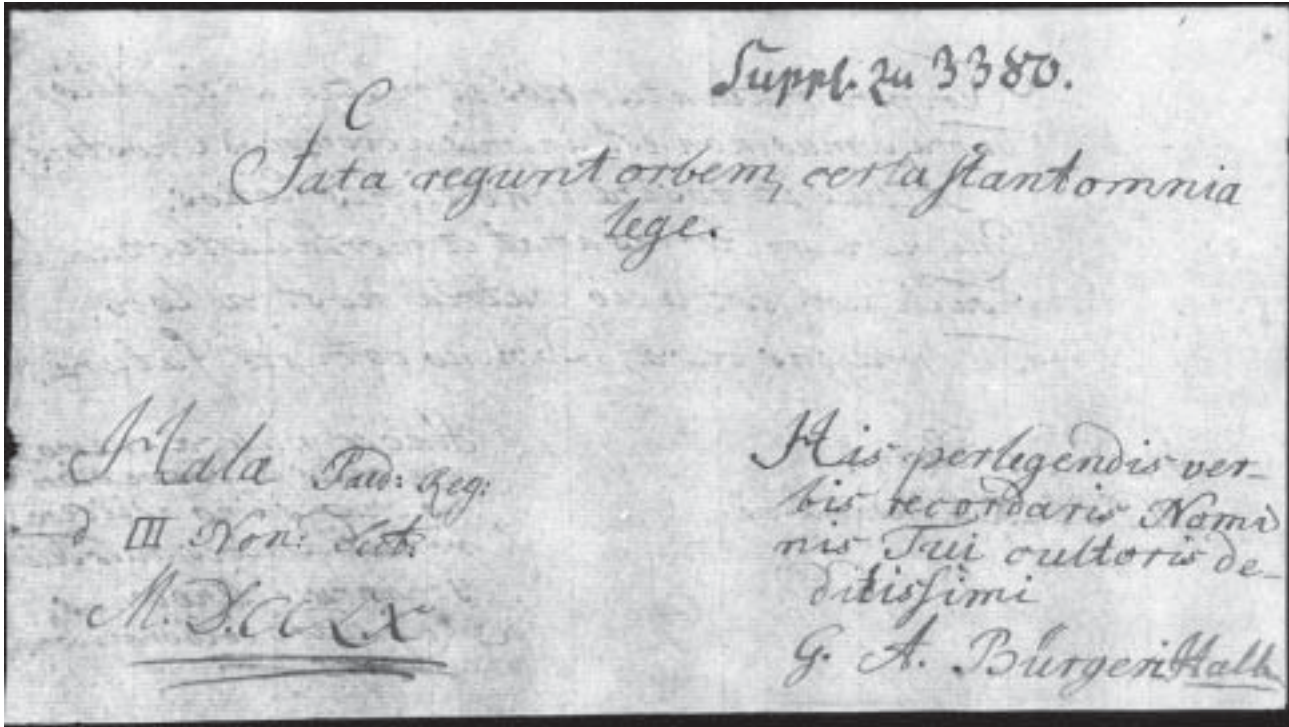 Suppl. zu 3380.
Fata regunt orbem, certa stant omnia
lege.
Hala Paed: Reg:
d III Non: Octb:
M. D.CC LX
His perlegendis ver-
bis recordaris Nomi
nis Tui cultoris de-
ditissimi
G. A. Bürgeri